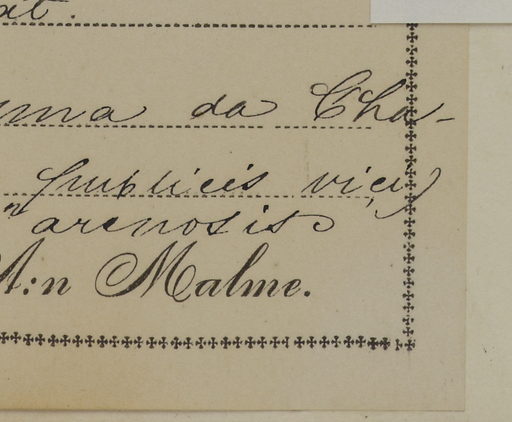 at.
ma da Cha-
publicis vicis,
"arenosis
A:n Malme.